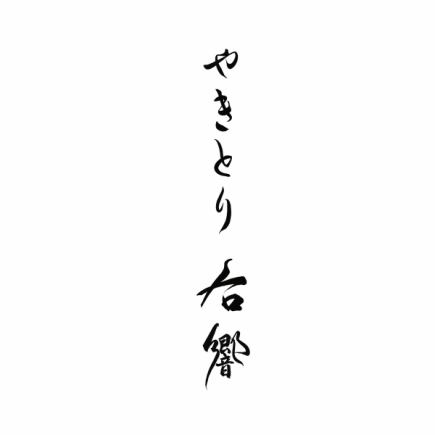 やきとり 右響